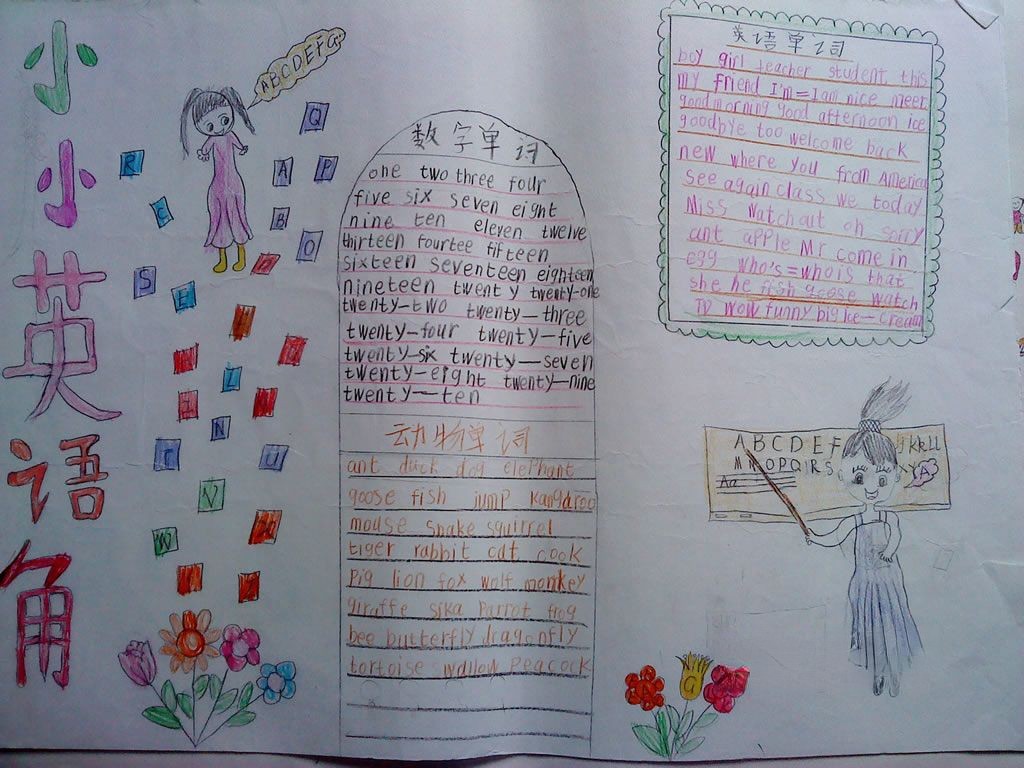 小小英语角
ABCDEFG
Q
R
A
P
C
B
O
S
E
L
N
U
N
W
数字单词
one two three four
five six seven eight
nine ten eleven twelve
thirteen fourtee fifteen
sixteen seventeen eighteen
nineteen twenty twenty-one
twenty-two twenty-three
twenty-four twenty-five
twenty-six twenty-seven
twenty-eight twenty-nine
twenty-ten
动物单词
ant duck dog elephant
goose fish jump kangaroo
mouse snake squirrel
tiger rabbit cat cock
pig lion fox wolf monkey
giraffe sika parrot frog
bee butterfly dragonfly
tortoise swallow peacock
英语单词
boy girl teacher student this
my friend I'm=I am nice meet
good morning good afternoon ice
goodbye too welcome back
new where you from America
see again class we today
Miss Watch out oh sorry
ant apple Mr come in
egg who's=who is that
she he fish goose watch
TV wow funny big ice-cream
ABCDEF
Aa
A
A
G
A